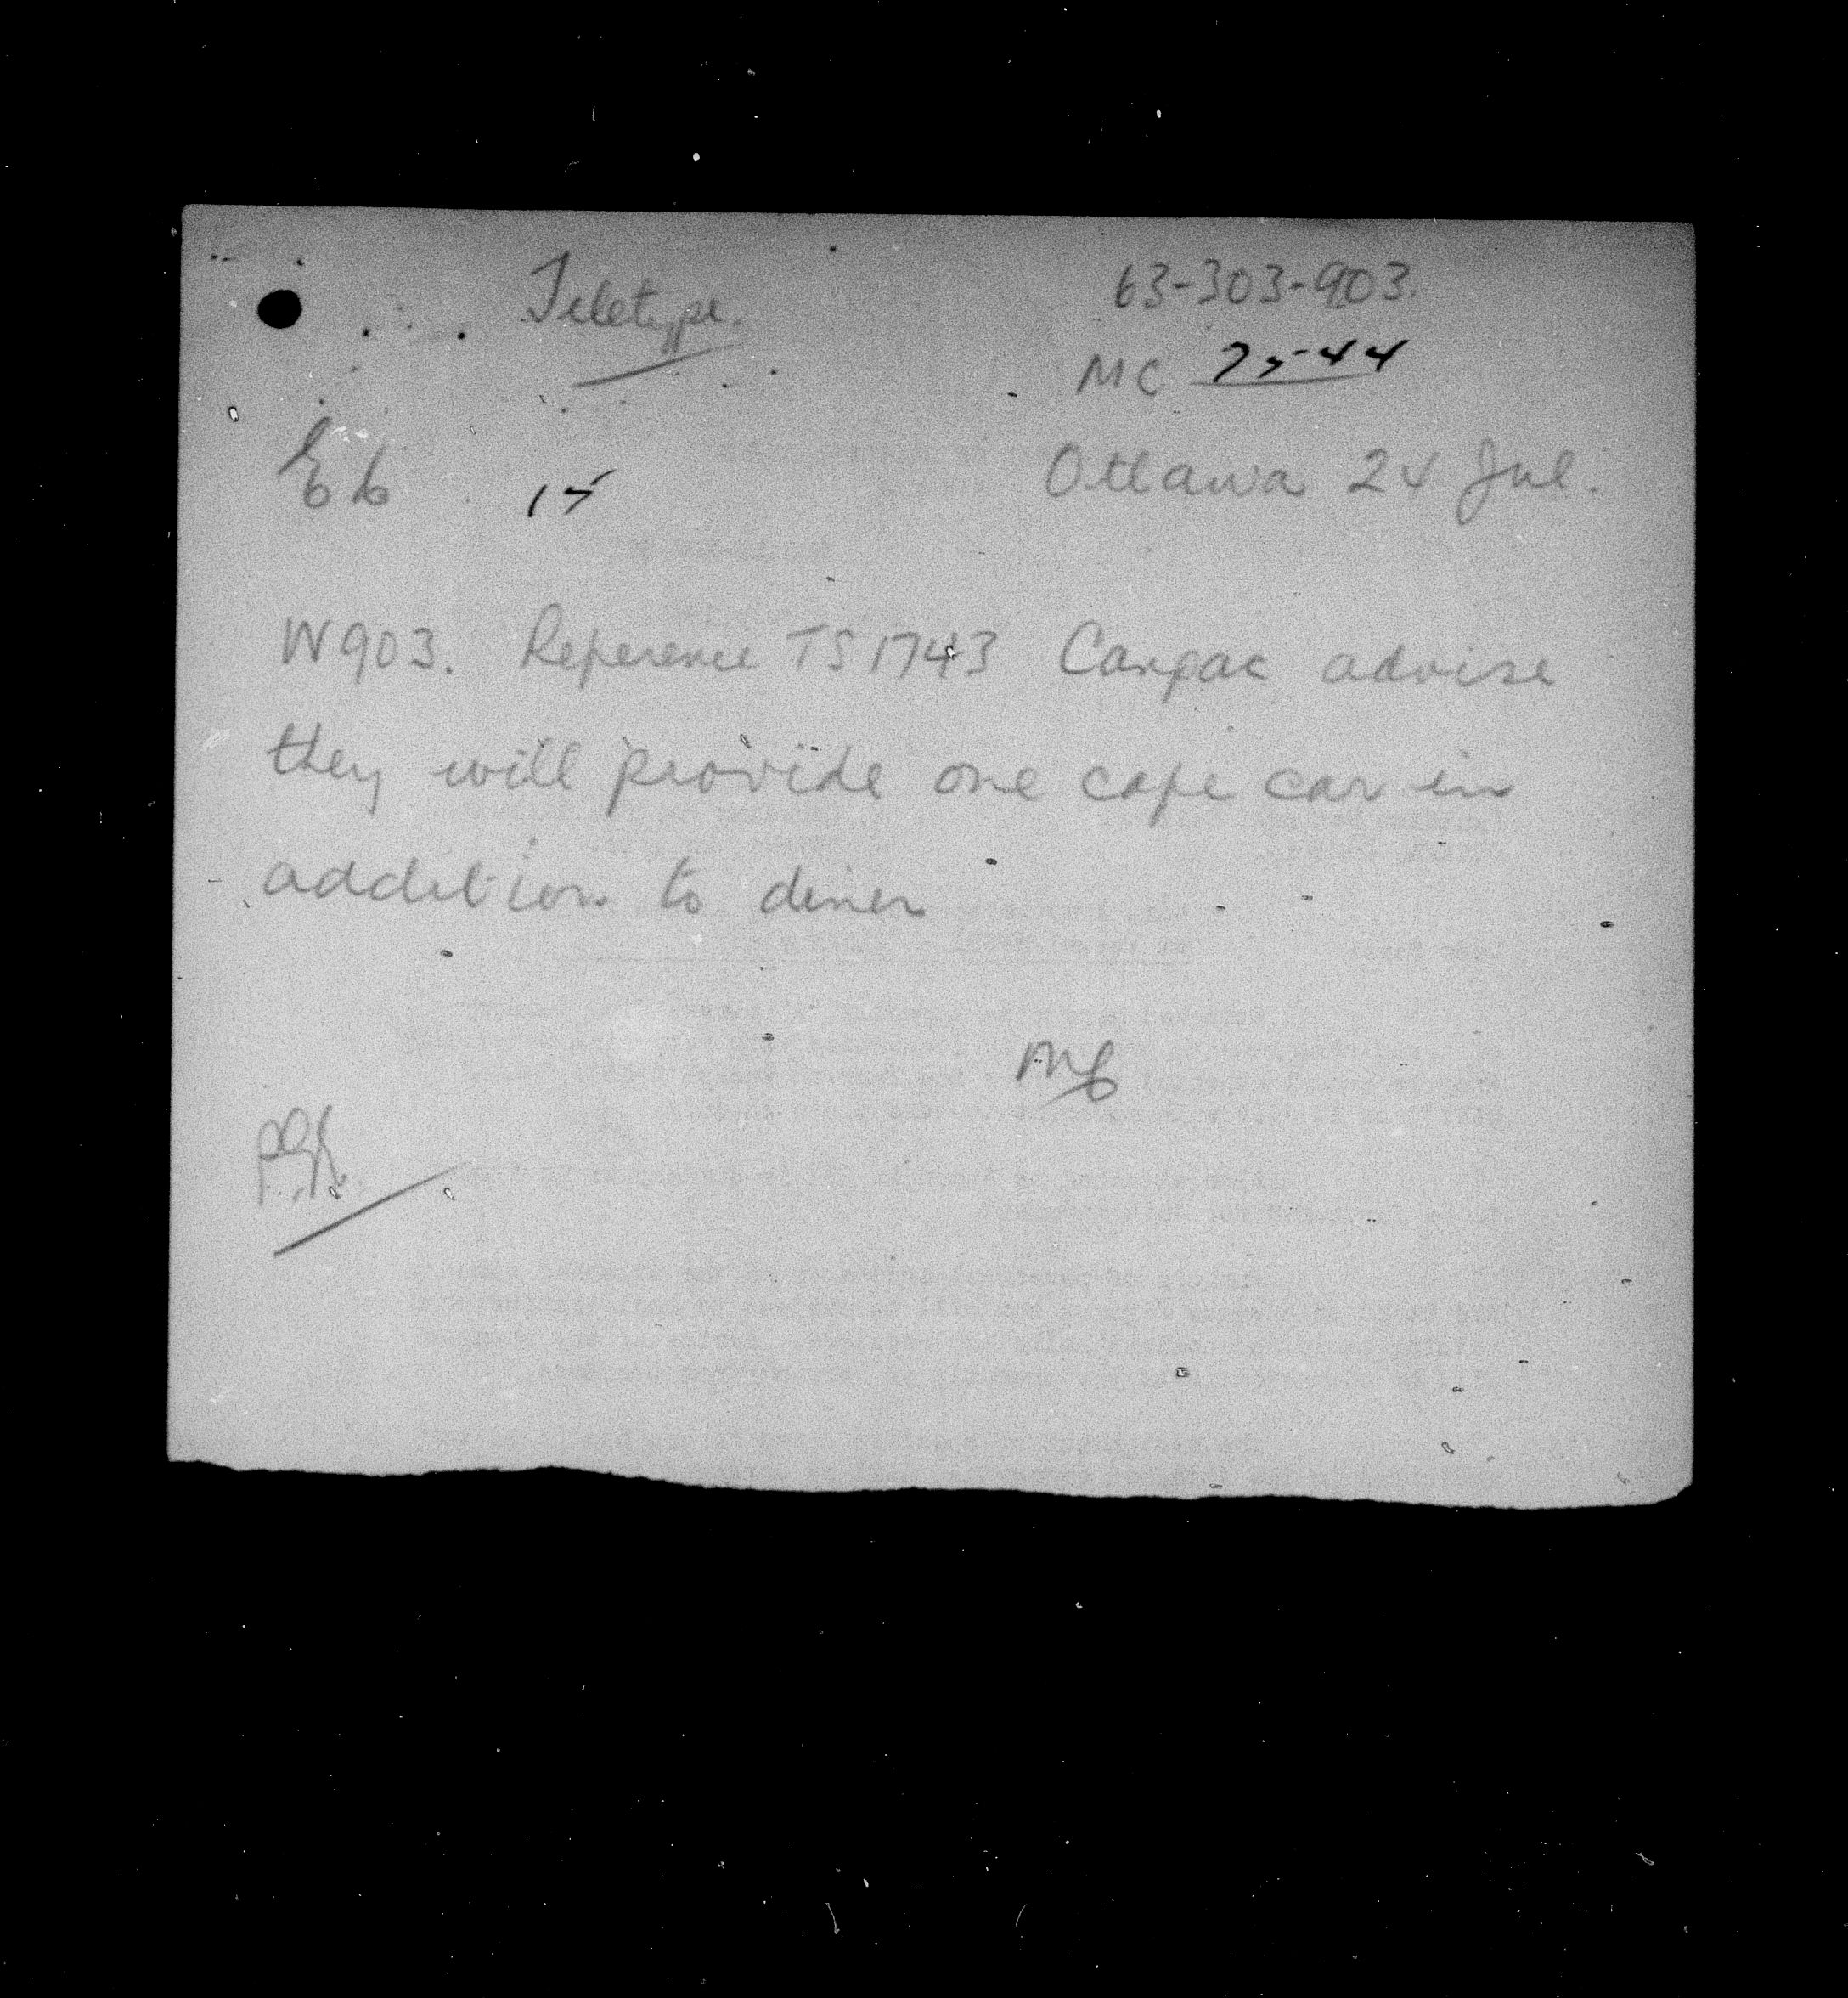 Teletype.
63-303-903.
MC 7544
15
Ottawa 24 Jul.
W903. Reference TS1743 Canpac advise
they will provide one cafe car in
addition to diner